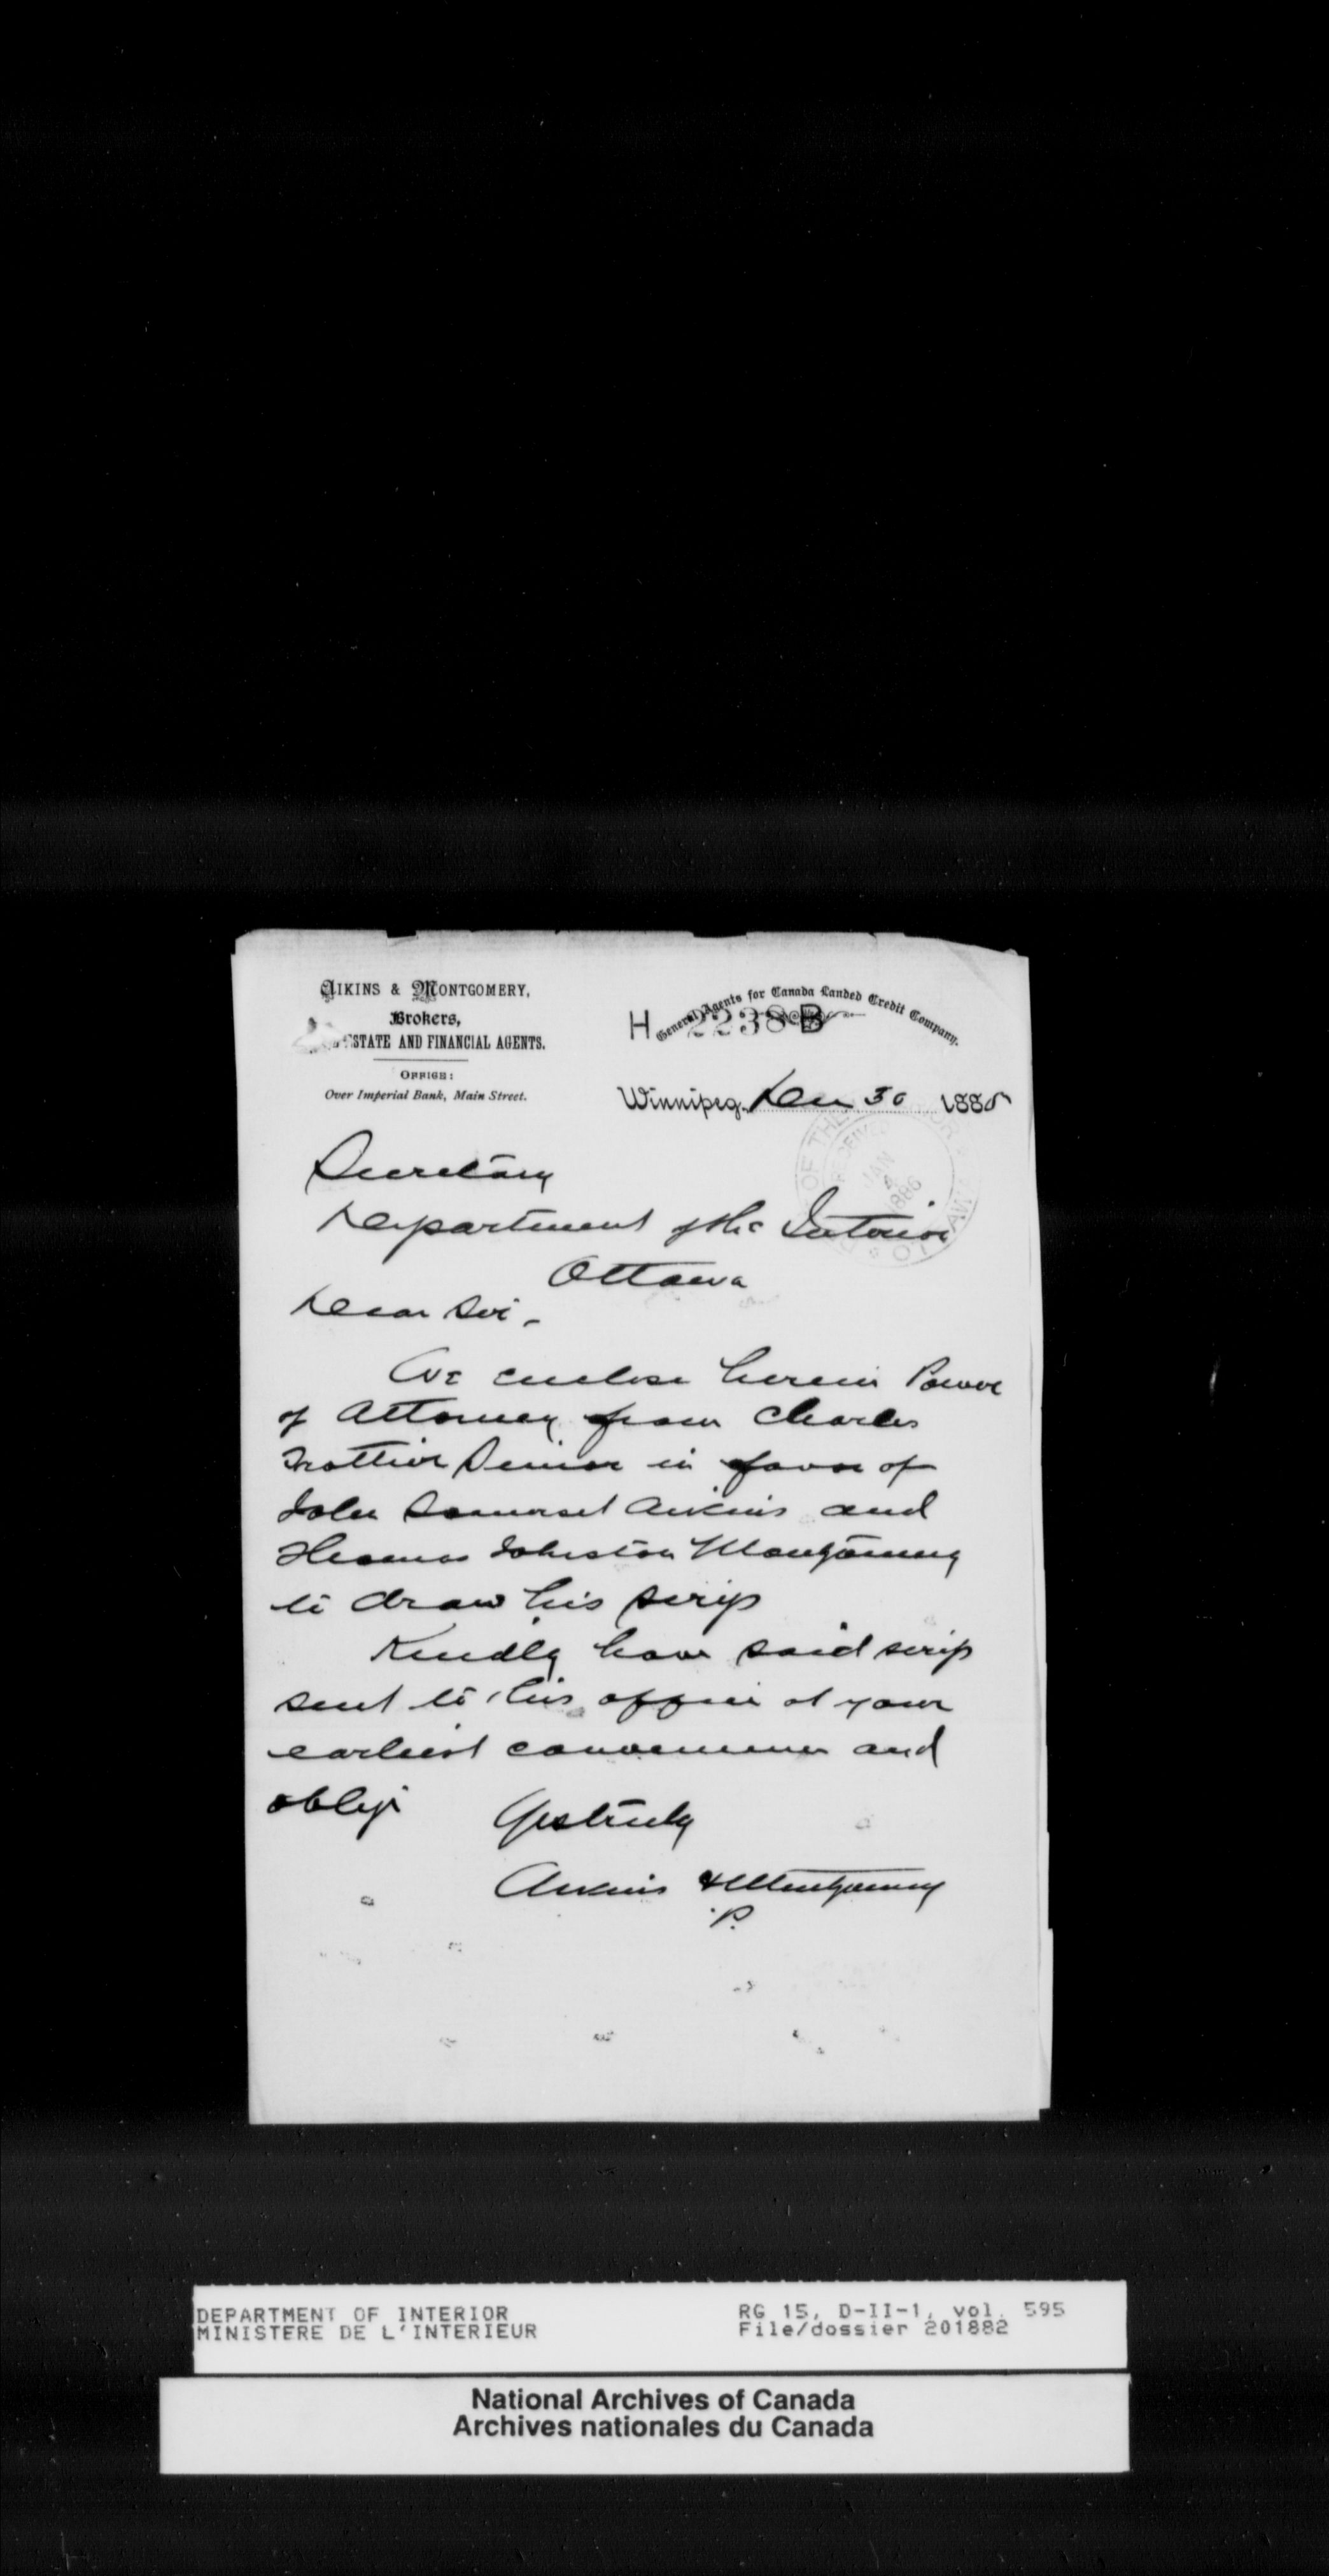 AIKINS & MONTGOMERY,
Brokers,
ESTATE AND FINANCIAL AGENTS.
OFFICE:
Over Imperial Bank, Main Street.
General Agents for Canada Landed Credit Company.
H 2238 B
Winnipeg, Dec 30 1885
OF THE
RECEIVED
JAN
1886
Secretary
Department of the Interior
Ottawa
Dear Sir -
We enclose herein Power
of Attorney from Charles
Trottier Senior in favor of
John Somerset Aikins and
Thomas Johnston Montgomery
to draw his scrip
Kindly have said scrip
sent to this office at your
earliest convenience and
oblige
Yrs truly
Aikins & Montgomery
P.
DEPARTMENT OF INTERIOR
MINISTERE DE L'INTERIEUR
RG 15, D-II-1, vol. 595
File/dossier 201882
National Archives of Canada
Archives nationales du Canada